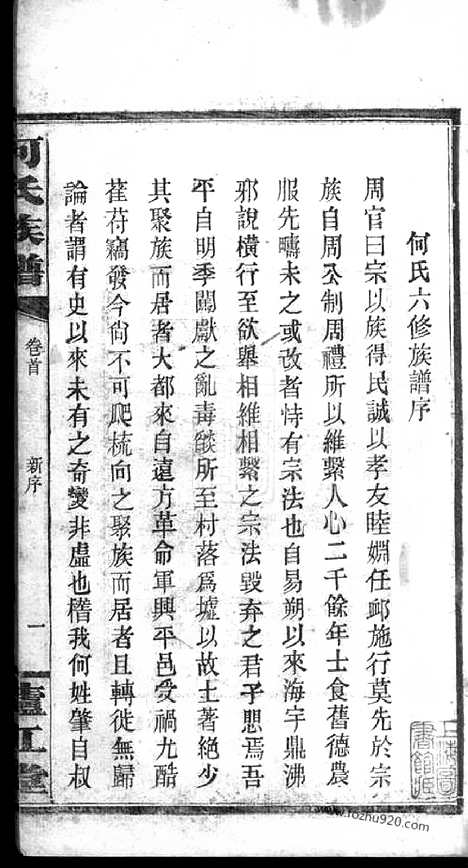 何氏六修族譜序
周官曰宗以族得民誠以孝友睦婣任卹施行莫先於宗
族自周公制周禮所以維繫人心二千餘年士食舊德農
服先疇未之或改者恃有宗法也自易朔以來海宇鼎沸
邪說橫行至欲舉相維相繫之宗法毀弃之君子愳焉吾
平自明季闖獻之亂毒燄所至村落爲墟以故土著絕少
其聚族而居者大都來自遠方革命軍興平邑受禍尤酷
萑苻竊發今尙不可爬梳向之聚族而居者且轉徙無歸
論者謂有史以來未有之奇變非虛也稽我何姓肇自叔
何氏族譜
卷首
新序
一
廬江堂
www.fozhu920.com